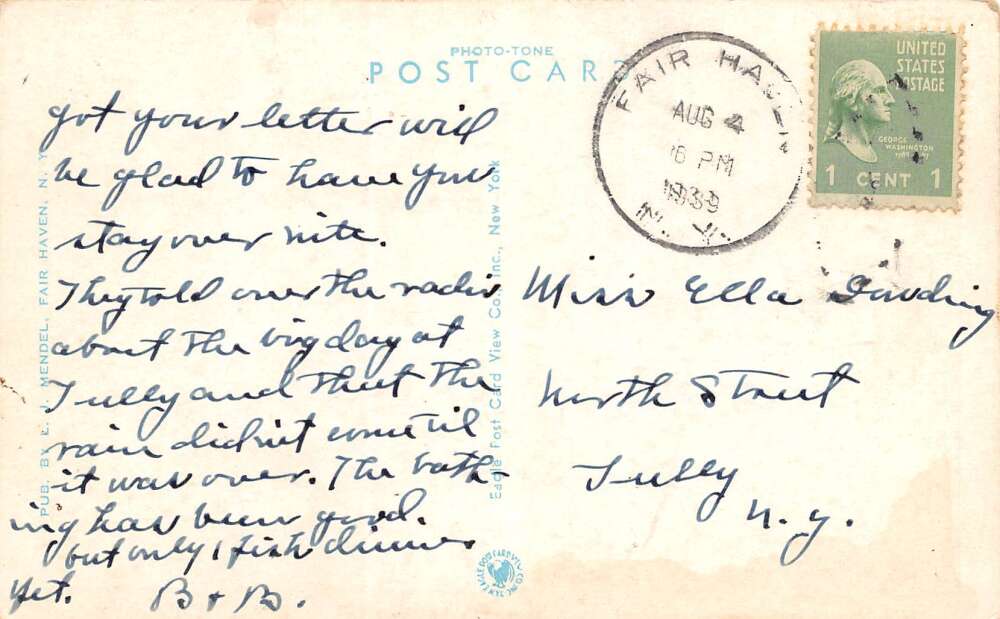 PHOTO-TONE
POST CARD
got your letter will
be glad to have you
stay over nite.
They told over the radio
about the big day at
Tully and that the
rain didn't come til
it was over. The bath-
ing has been good.
but only 1 fish dinner
yet. B + B.
PUB. BY E. J. MENDEL, FAIR HAVEN, N. Y.
Eagle Post Card View Co., Inc., New York
FAIR HAVEN
AUG 4
6 PM
1939
N.Y.
UNITED
STATES
POSTAGE
GEORGE
WASHINGTON
1 CENT 1
Miss Ella
North Street
Tully
N. Y.